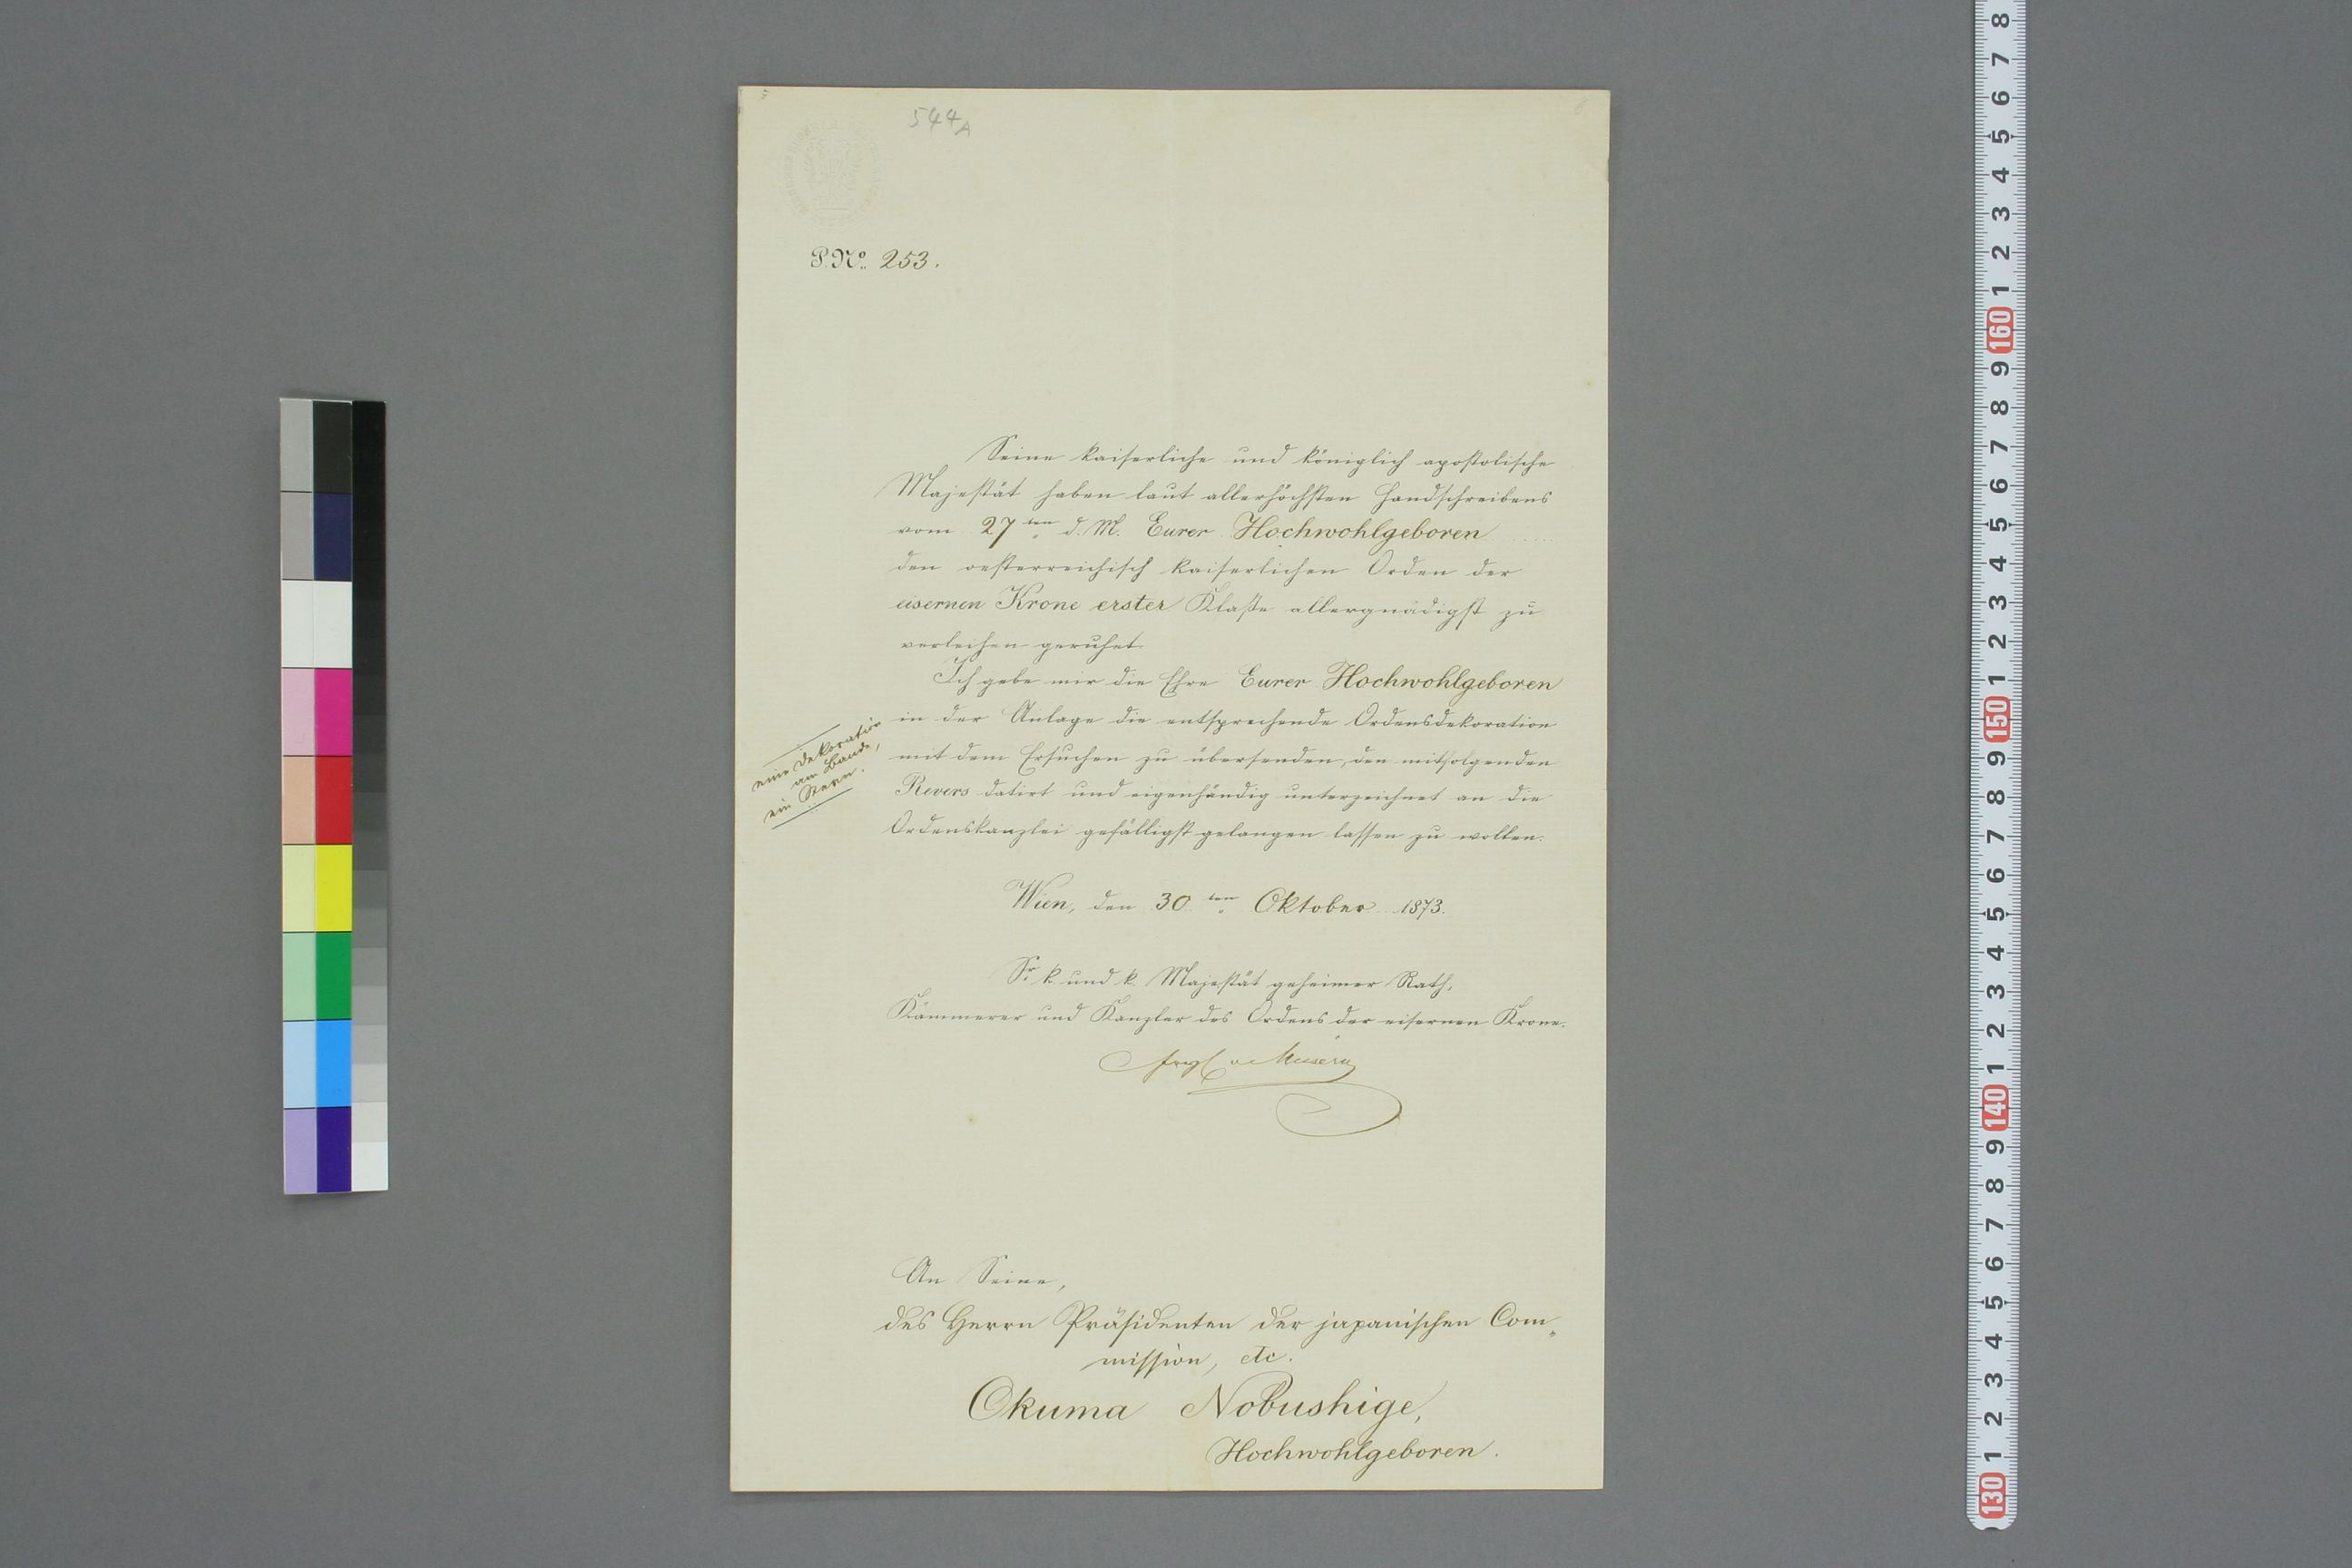 544A
P. No. 253.
Seine kaiserliche und königlich apostolische
Majestät haben laut allerhöchsten Handschreibens
vom 27ten d. M. Eurer Hochwohlgeboren
den oesterreichisch kaiserlichen Orden der
eisernen Krone erster Klaße allergnädigst zu
verleihen geruhet.
Ich gebe mir die Ehre Eurer Hochwohlgeboren
in der Anlage die entsprechende Ordensdekoration
mit dem Ersuchen zu übersenden, den mitfolgenden
Revers datirt und eigenhändig unterzeichnet an die
Ordenskanzlei gefälligst gelangen lassen zu wollen.
eine Dekoration
am Bande,
ein Stern.
Wien, den 30ten Oktober 1873.
Sr. k. und k. Majestät geheimer Rath,
Kämmerer und Kanzler des Ordens der eisernen Krone.
An Seine,
des Herrn Präsidenten der japanischen Com„
mission, etc.
Okuma Nobushige,
Hochwohlgeboren.
8 7 6 5 4 3 2 1 160 9 8 7 6 5 4 3 2 1 150 9 8 7 6 5 4 3 2 1 140 9 8 7 6 5 4 3 2 1 130